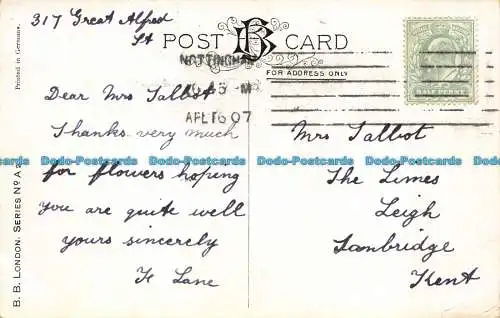 317 Great Alfred
St
POST CARD
BB
NOTTINGHAM
APL 16 07
FOR ADDRESS ONLY
HALF PENNY
Printed in Germany.
B. B. LONDON. SERIES Nº A 2
Dear Mrs Talbot
Thanks very much
for flowers hoping
you are quite well
yours sincerely
Lane
Mrs Talbot
The Limes
Leigh
Tonbridge
Kent
Dodo-Postcards Dodo-Postcards Dodo-Postcards Dodo-Postcards Dodo-Postcards